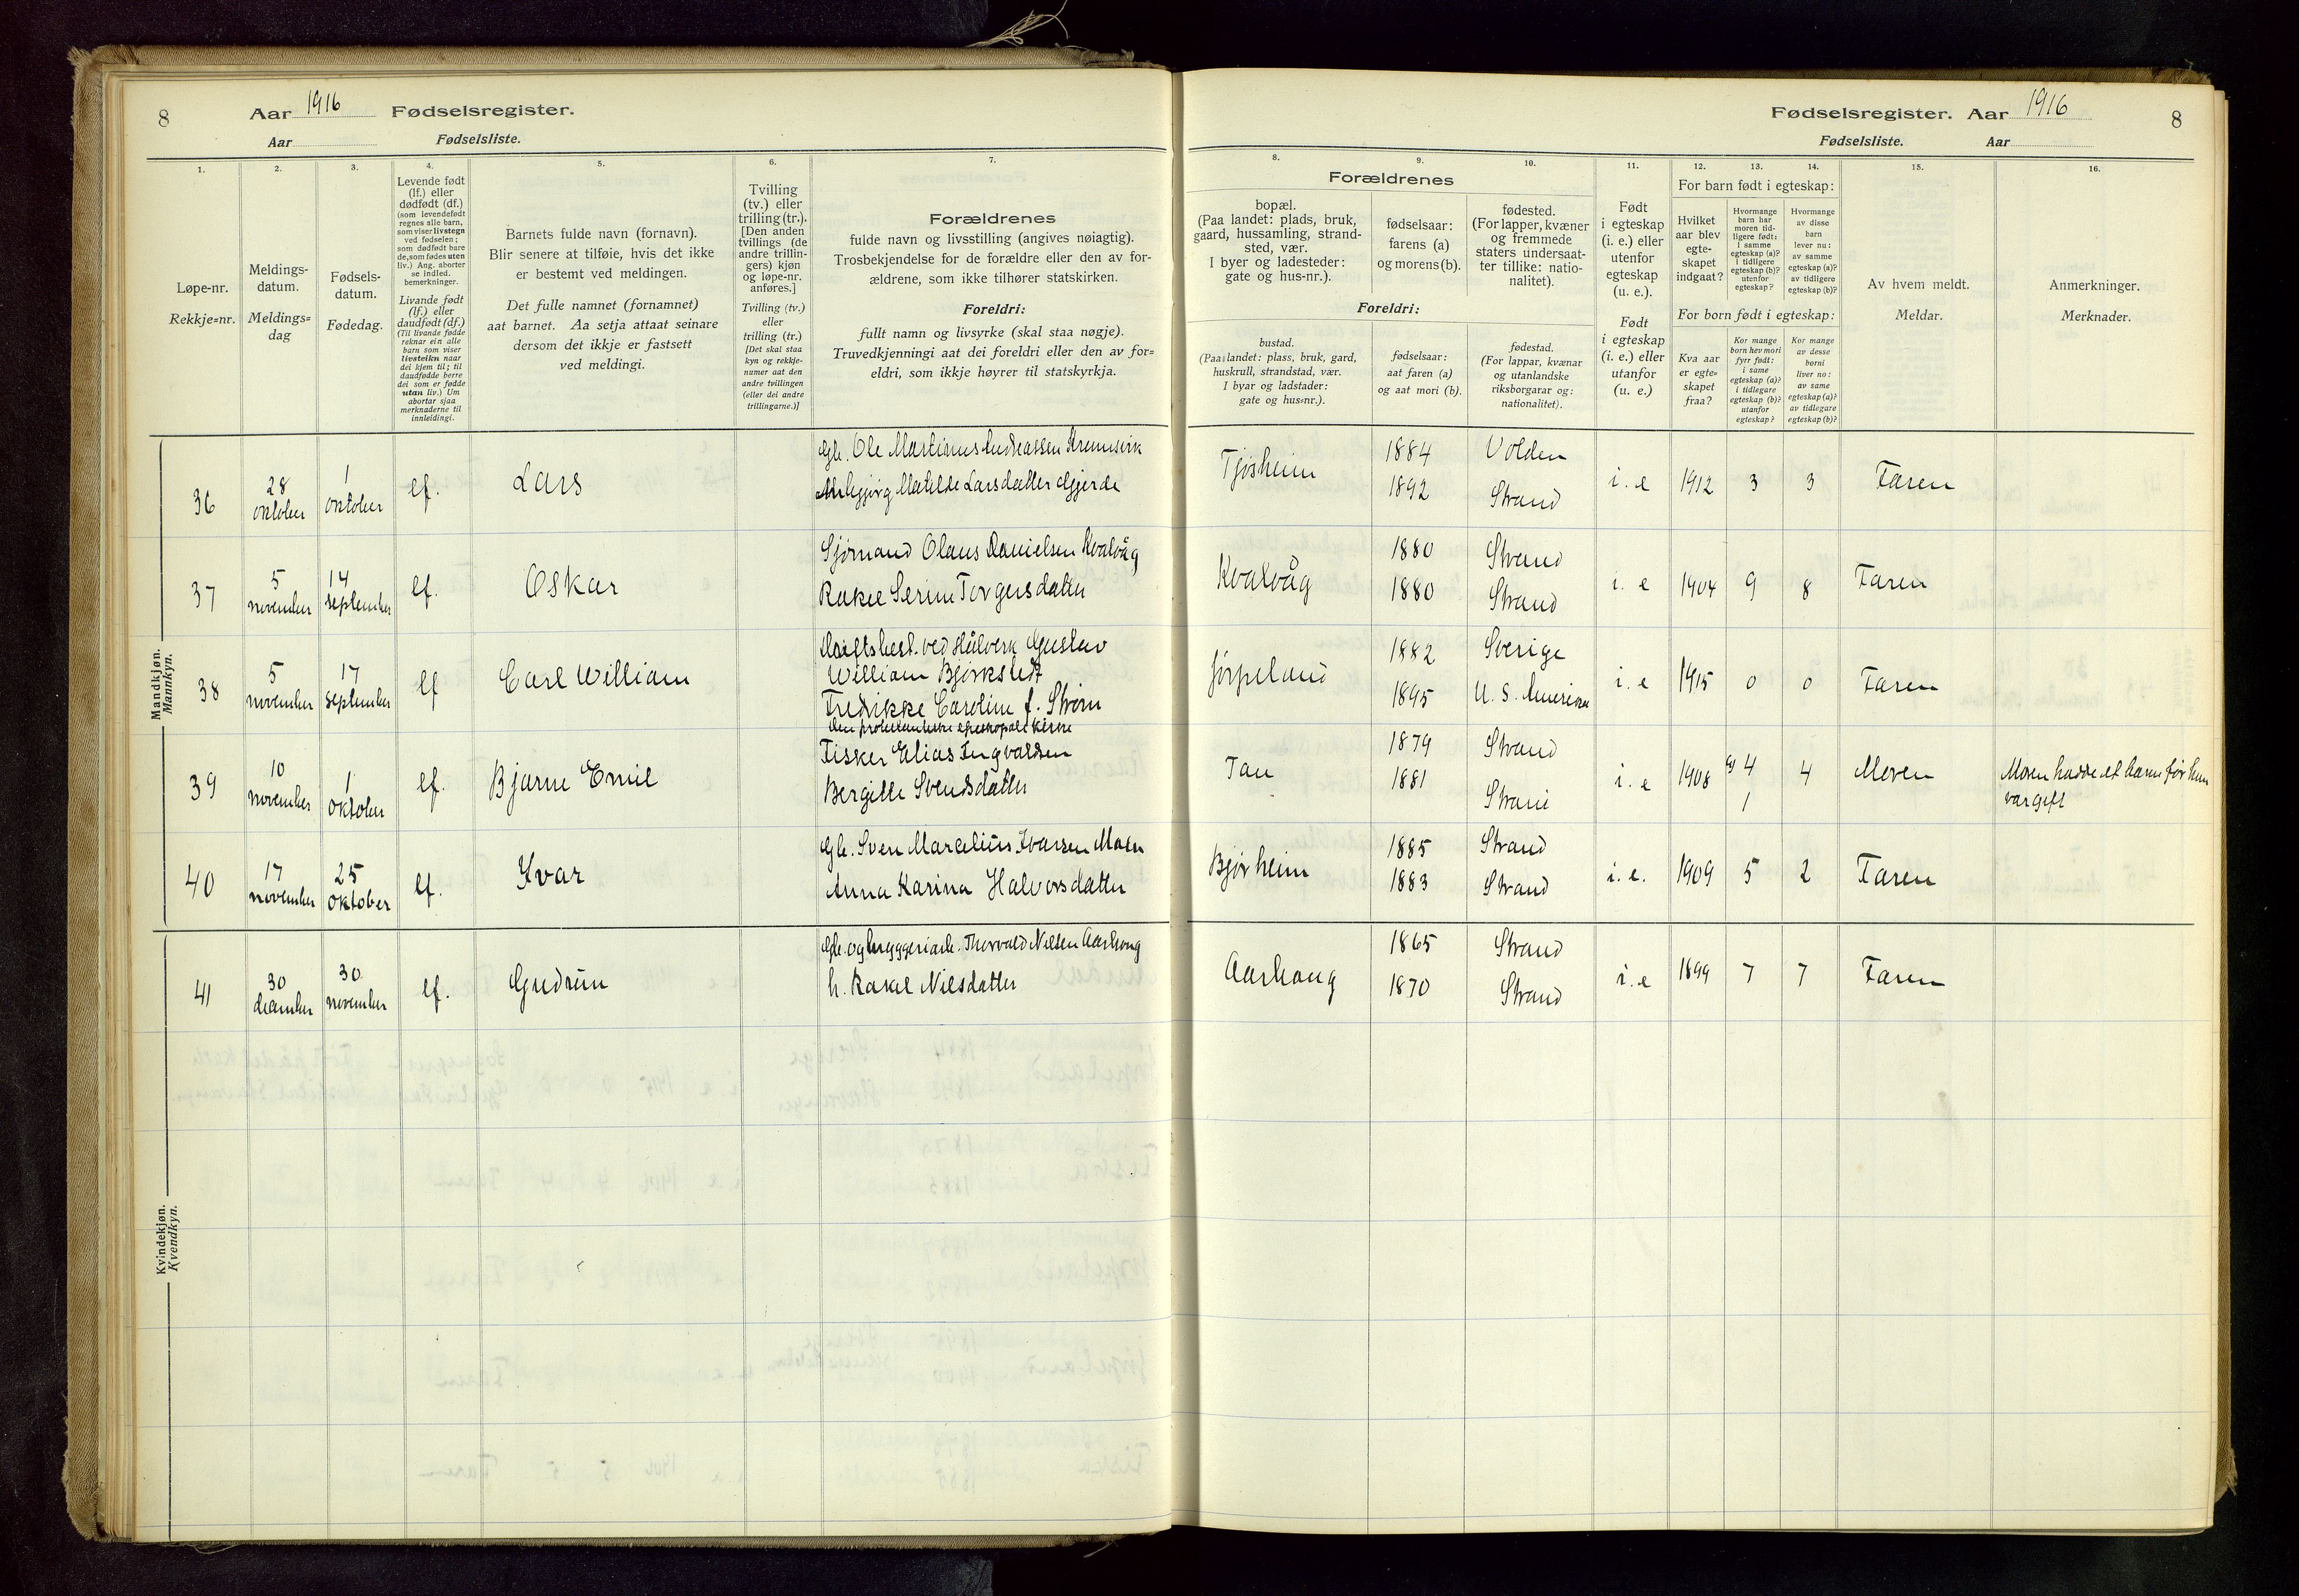 8
Aar 1916 Fødselsregister.
Aar Fødselsliste.
1.
2.
3.
4.
5.
6.
7.
Løpe-nr.
Rekkje=nr.
Meldings-
datum.
Meldings=
dag
Fødsels-
datum.
Fødedag.
Levende født
(lf.) eller
dødfødt (df.)
(som levendefødt
regnes alle barn,
som viser livstegn
ved fødselen;
som dødfødt bare
de, som fødes uten
liv.) Ang. aborter
se indled.
bemerkninger.
Livande født
(lf.) eller
daudfødt (df.)
(Til livande fødde
reknar ein alle
barn som viser
livsteikn naar
dei kjem til; til
daudfødde berre
dei som er fødde
utan liv.) Um
abortar sjaa
merknaderne til
innleidingi.
Barnets fulde navn (fornavn).
Blir senere at tilføie, hvis det ikke
er bestemt ved meldingen.
Det fulle namnet (fornamnet)
aat barnet. Aa setja attaat seinare
dersom det ikkje er fastsett
ved meldingi.
Tvilling
(tv.) eller
trilling (tr.).
[Den anden
tvillings (de
andre trillin-
gers) kjøn
og løpe-nr.
anføres.]
Tvilling (tv.)
eller
trilling (tr.)
[Det skal staa
kyn og rekkje-
numer aat den
andre tvillingen
(eller dei andre
trillingarne.)]
Forældrenes
fulde navn og livsstilling (angives nøiagtig).
Trosbekjendelse for de forældre eller den av for-
ældrene, som ikke tilhører statskirken.
Foreldri:
fullt namn og livsyrke (skal staa nøgje).
Truvedkjenningi aat dei foreldri eller den av for=
eldri, som ikkje høyrer til statskyrkja.
Mandkjøn.
Mannkyn.
36
28
oktober
1
oktober
lf.
Lars
Gb. Ole Martinus Andreassen Kremsvik
Matilde Larsdatter Gjerde
37
5
november
14
september
lf.
Oskar
Sjømand Olaus Danielsen Kvalvåg
Rakel Serine Torgersdatter
38
5
november
17
september
lf
Carl William
Driftsbest. ved Stålverk Gustav
William Bjørkstedt
Fredrikke Caroline f. Strøm
den protestantiske episkopale kirke
39
10
november
1
oktober
lf.
Bjarne Emil
Fisker Elias Ingvaldsen
Bergitte Svendsdatter
40
17
november
25
oktober
lf.
Ivar
Gb. Sven Marcelius Ivarsen Moen
Anna Karina Halvorsdatter
Kvindekjøn.
Kvendkyn.
41
30
december
30
november
lf.
Gudrun
Gb. og bryggeriarb. Thorvald Nilsen Aarhaug
h. Rakel Nilsdatter
Fødselsregister. Aar 1916
8
Fødselsliste. Aar
8.
9.
10.
11.
12.
13.
14.
15.
16.
Forældrenes
bopæl.
(Paa landet: plads, bruk,
gaard, hussamling, strand-
sted, vær.
I byer og ladesteder:
gate og hus-nr.).
fødselsaar:
farens (a)
og morens (b).
fødested.
(For lapper, kvæner
og fremmede
staters undersaat-
ter tillike: natio-
nalitet).
Foreldri:
bustad.
(Paa landet: plass, bruk, gard,
huskrull, strandstad, vær.
I byar og ladstader:
gate og hus=nr.).
fødselsaar:
aat faren (a)
og aat mori (b).
fødestad.
(For lappar, kvænar
og utanlandske
riksborgarar og:
nationalitet).
Født
i egteskap
(i. e.) eller
utenfor
egteskap
(u. e.).
Født
i egteskap
(i. e.) eller
utanfor
(u. e.).
For barn født i egteskap:
Hvilket
aar blev
egte-
skapet
indgaat?
Hvormange
barn har
moren tid-
ligere født:
i samme
egteskap (a)?
i tidligere
egteskap (b)?
utenfor
egteskap?
Hvormange
av disse
barn
lever nu:
av samme
egteskap (a)?
av tidligere
egteskap (b)?
For born født i egteskap:
Kva aar
er egte=
skapet
fraa?
Kor mange
born hev mori
fyrr født:
i same
egteskap (a)?
i tidlegare
egteskap (b)?
utanfor
egteskap?
Kor mange
av desse
borni
liver no:
av same
egteskap (a)?
av tidlegare
egteskap (b)?
Av hvem meldt.
Meldar.
Anmerkninger.
Merknader.
Tjøsheim
1884
1892
Volden
Strand
i. e
1912
3
3
Faren
Kvalvåg
1880
1880
Strand
Strand
i. e
1904
9
8
Faren
Jørpeland
1882
1895
Sverige
U. S. Amerika
i. e
1915
0
0
Faren
Tau
1879
1881
Strand
Strand
i. e
1908
4
1
4
Moren
Moren hadde et barn før hun
var gift
Bjørheim
1885
1883
Strand
Strand
i. e.
1909
5
2
Faren
Aarhaug
1865
1870
Strand
Strand
i. e
1899
7
7
Faren